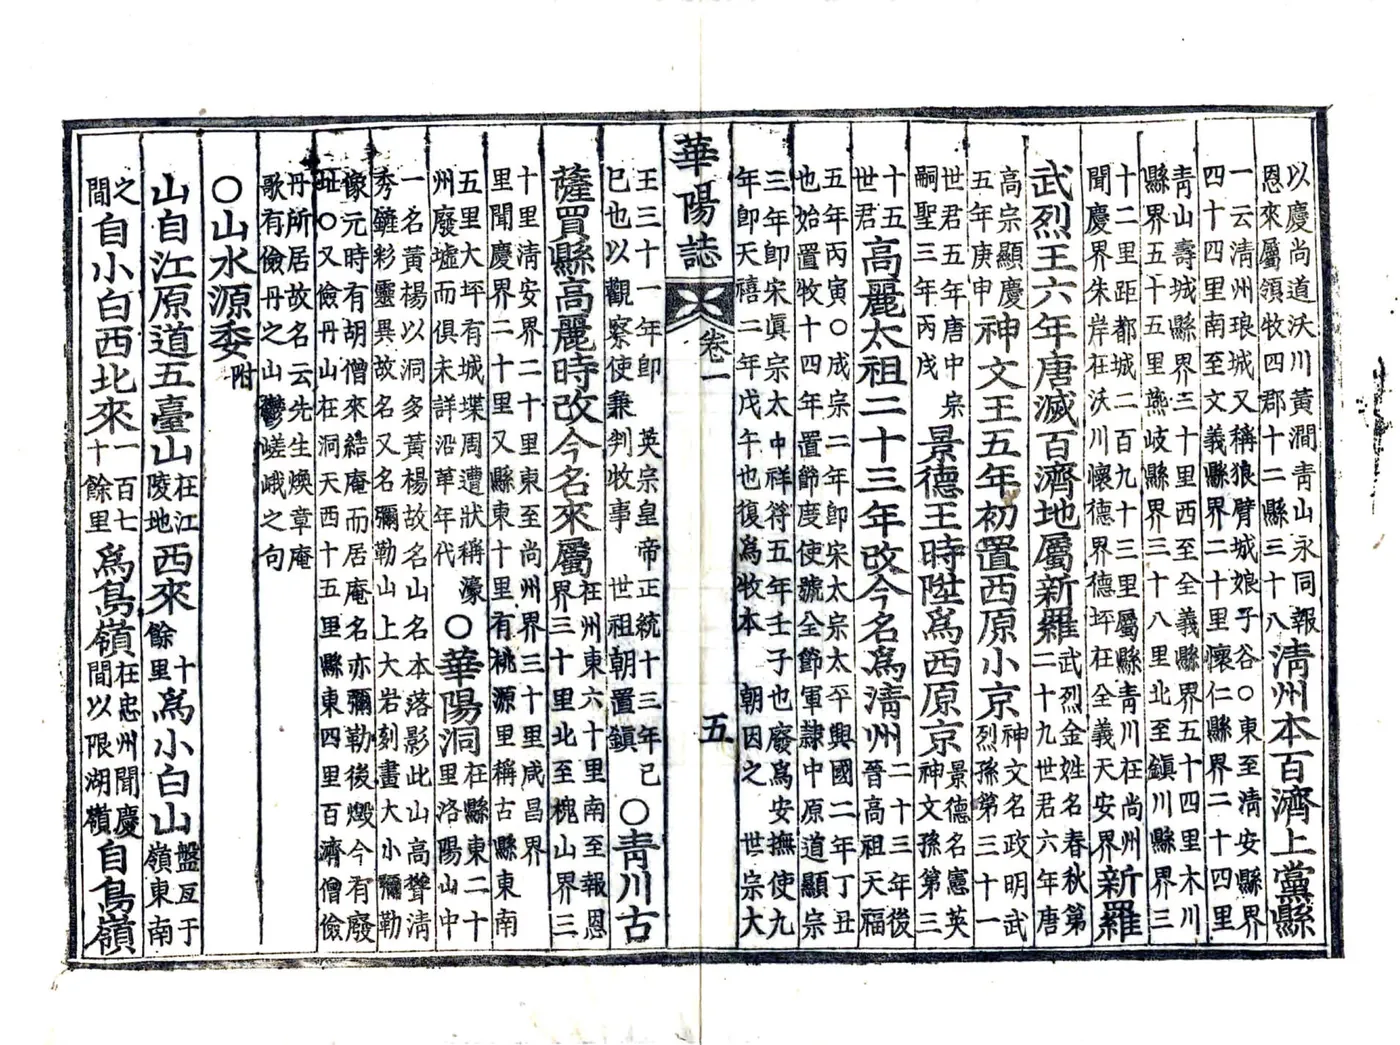 以慶尚道沃川黃澗靑山永同報
恩來屬領牧四郡十二縣三十八
淸州本百濟上黨縣
一云淸州琅城又稱狼臂城娘子谷○東至淸安縣界
四十四里南至文義縣界二十里懷仁縣界二十四里
靑山壽城縣界三十里西至全義縣界五十四里木川
縣界五十五里燕岐縣界三十八里北至鎭川縣界三
十二里距都城二百九十三里屬縣靑川在尚州
聞慶界朱岸在沃川懷德界德坪在全義天安界
新羅
武烈王六年唐滅百濟地屬新羅
武烈金姓名春秋第
二十九世君六年唐
高宗顯慶
五年庚申
神文王五年初置西原小京
神文名政明武
烈孫第三十一
世君五年唐中宗
嗣聖三年丙戌
景德王時陞爲西原京
景德名憲英
神文孫第三
十五
世君
高麗太祖二十三年改今名爲淸州
二十三年後
晉高祖天福
五年丙寅○成宗二年卽宋太宗太平興國二年丁丑
也始置牧十四年置節度使號全節軍隷中原道顯宗
三年卽宋眞宗太中祥符五年壬子也廢爲安撫使九
年卽天禧二年戊午也復爲牧本 朝因之 世宗大
華陽誌 卷一 五
王三十一年卽 英宗皇帝正統十三年己
巳也以觀察使兼判牧事 世祖朝置鎭
○靑川古
薩買縣高麗時改今名來屬
在州東六十里南至報恩
界三十里北至槐山界三
十里淸安界二十里東至尚州界三十里咸昌界
里聞慶界二十里又縣東十里有桃源里稱古縣東南
五里大坪有城堞周遭狀稱濠
州廢墟而俱未詳沿革年代
○華陽洞
在縣東二十
里洛陽山中
一名黃楊以洞多黃楊故名山名本落影此山高聳淸
秀鍾彩靈異故名又名彌勒山上大岩刻畫大小彌勒
像元時有胡僧來結庵而居庵名亦彌勒後燬今有廢
址○又儉丹山在洞天西十五里縣東四里百濟僧儉
丹所居故名云先生煥章庵
歌有儉丹之山鬱嵯峨之句
○山水源委附
山自江原道五臺山
在江
陵地
西來
十
餘里
爲小白山
盤亙于
嶺東南
之
間
自小白西北來
一百七
十餘里
爲鳥嶺
在忠州聞慶
間以限湖嶺
自鳥嶺